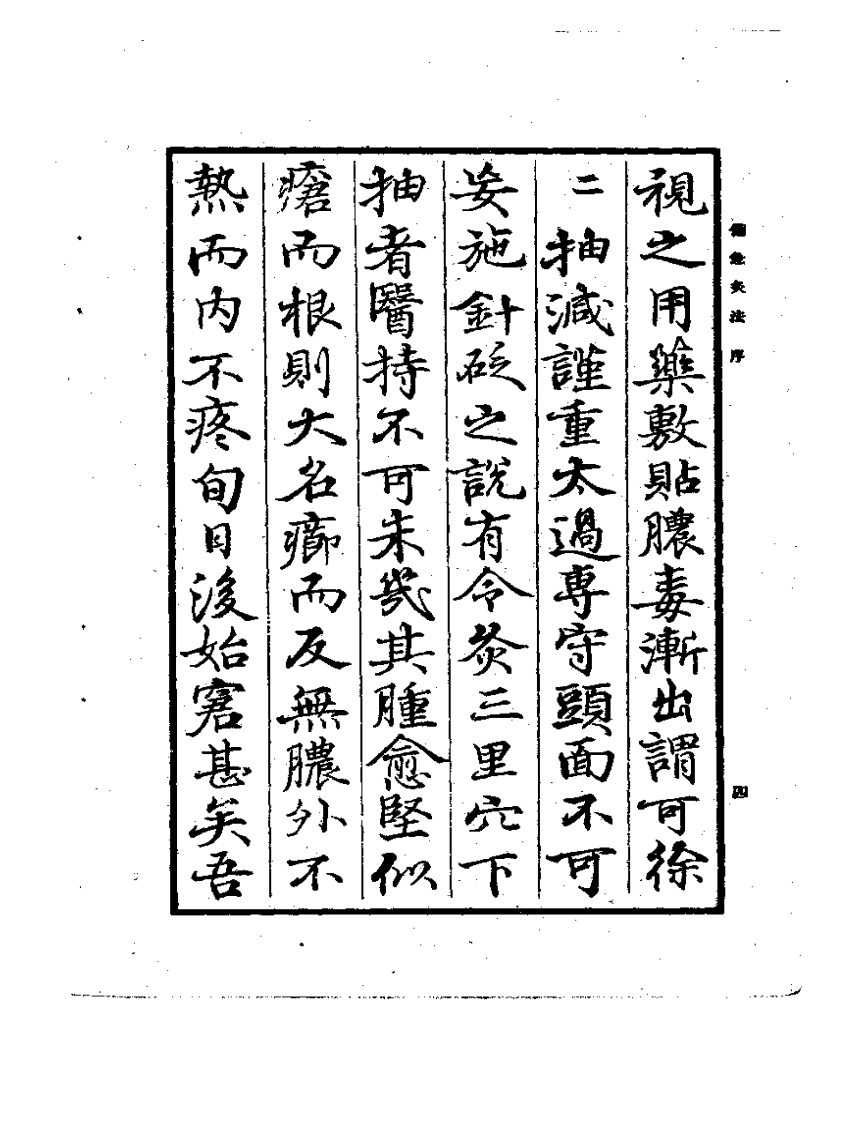 視之用藥敷貼膿毒漸出謂可徐
二抽減謹重太過專守頭面不可
妄施針砭之說有令灸三里穴下
抽者醫持不可未幾其腫愈堅似
瘡而根則大名癤而反無膿外不
熱而內不疼旬日後始窘甚矣吾
備急灸法 序
四